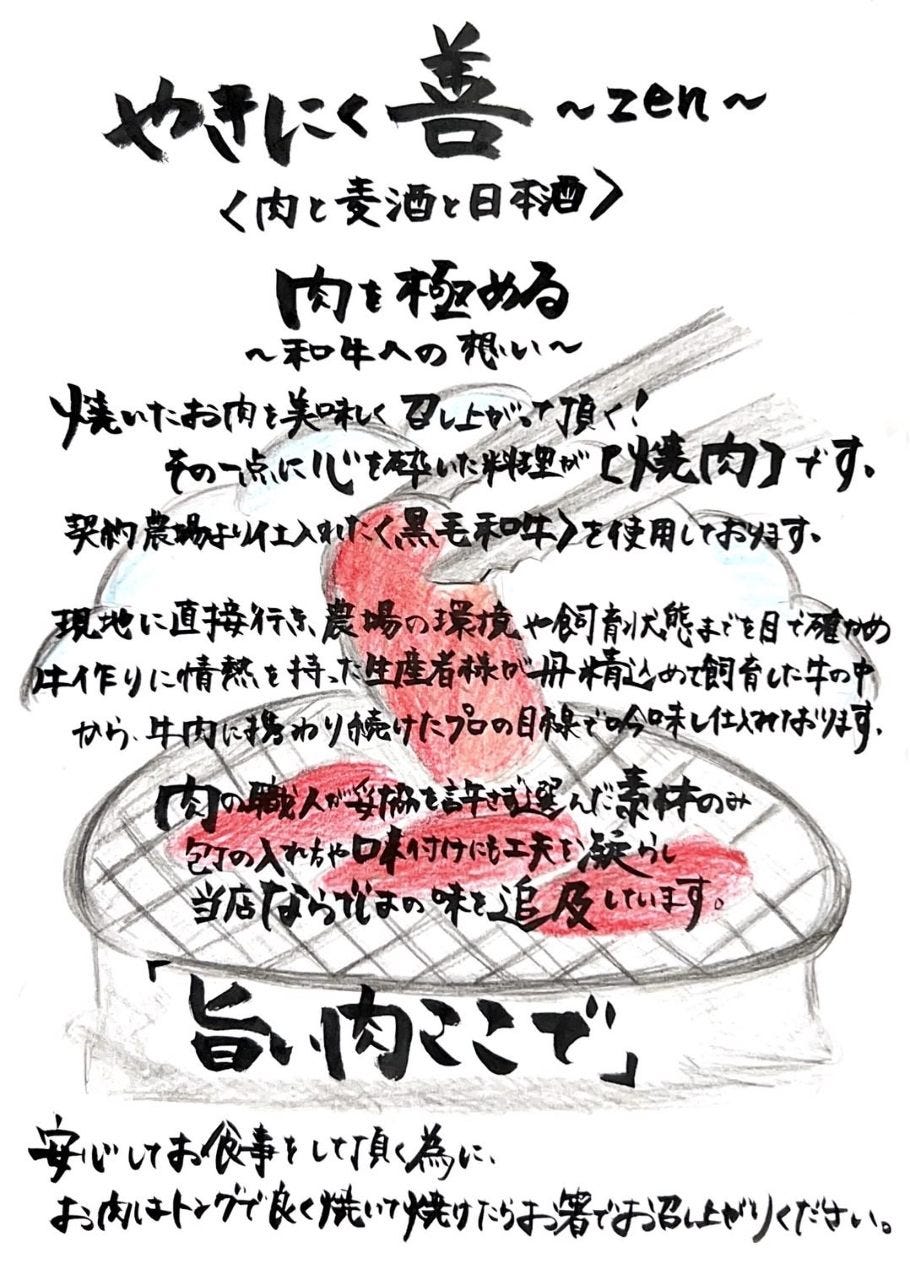 やきにく 善 ~zen~
〈肉と麦酒と日本酒〉
肉を極める
~和牛への想い~
焼いたお肉を美味しく召し上がって頂く!
その一点に心を砕いた料理が【焼肉】です。
契約農場より仕入れた〈黒毛和牛〉を使用しております。
現地に直接行き、農場の環境や飼育状態までを目で確かめ
牛作りに情熱を持った生産者様が丹精込めて飼育した牛の中
から、牛肉に携わり続けたプロの目線で吟味し仕入れております。
肉の職人が妥協を許さず選んだ素材のみ
包丁の入れ方や味付けにも工夫を凝らし
当店ならではの味を追及しています。
「旨い肉ここで」
安心してお食事をして頂く為に、
お肉はトングで良く焼いて焼けたらお箸でお召し上がりください。